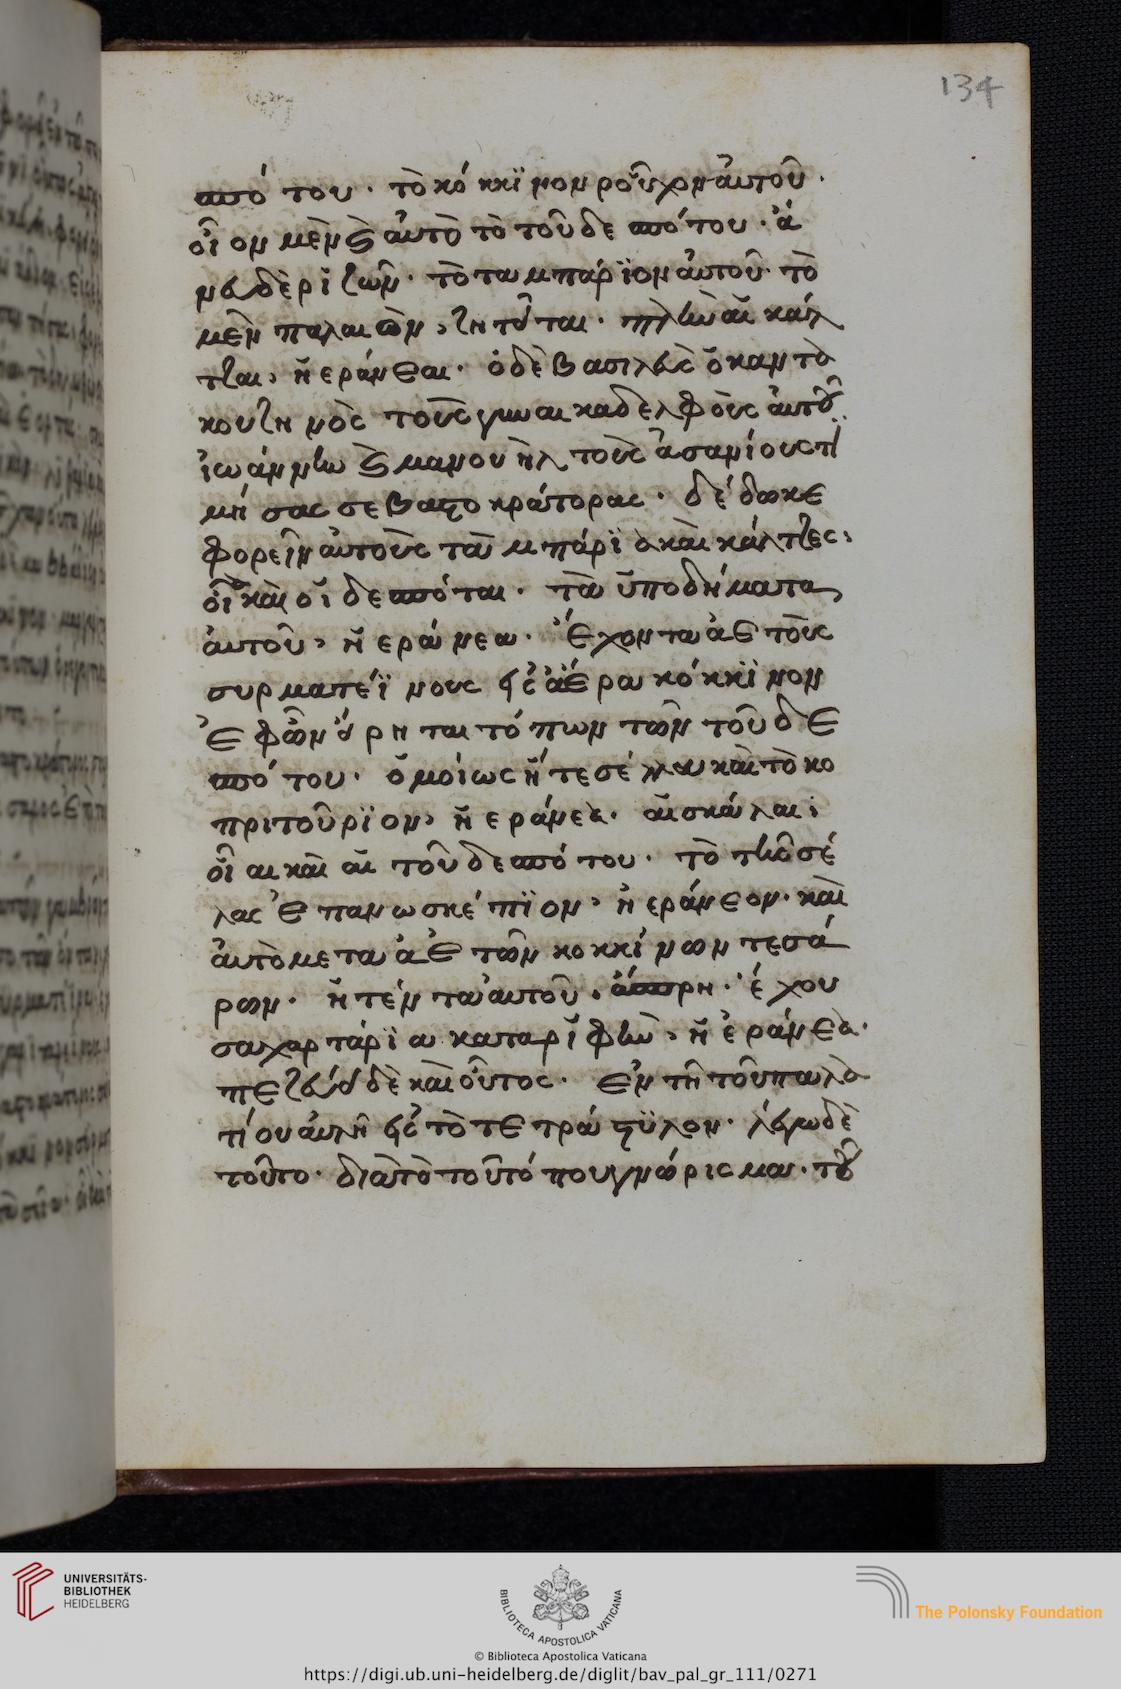 134
σπότου. τὸ κόκκϊνον ροῦχον αὐτοῦ.
οἷον μὲν καὶ αὐτὸ τὸ τοῦ δεσπότου. ἄ
νευ δὲ ριζῶν. τὸ ταμπάρϊον αὐτοῦ. τὸ
μὲν παλαιὸν, ζητεῖται. πλὴν αἱ κάλ
τζαι, ἠεράνεαι. ὁ δὲ βασιλεὺς ὁ καντα
κουζηνὸς τοὺς γυναικαδελφοὺς αὐτοῦ
ἰωάννην καὶ μανουὴλ τοὺς ἀσανίους τι
μήσας σεβαστοκράτορας. δέδωκε
φορεῖν αὐτοὺς ταμπάρϊα καὶ κάλτζες,
οἷα καὶ οἱ δεσπόται. τὰ ὑποδήματα
αὐτοῦ, ἠεράνεα. ἔχοντα ἀετοὺς
συρματεΐνους εἰς ἀέρα κόκκϊνον
ἐφ' ὧν εἴρηται τόπων τῶν τοῦ δε
σπότου. ὁμοίως ἥ τε σέλλα καὶ τὸ κο
πριτούρϊον, ἠεράνεα. αἱ σκάλαι,
οἷαι καὶ αἱ τοῦ δεσπότου. τὸ τῆς σέ
λας ἐπανωσκέπϊον, ἠεράνεον. καὶ
αὐτὸ μετὰ ἀετῶν κοκκίνων τεσά
ρων. ἡ τέντα αὐτοῦ. ἄσπρη. ἔχου
σα χαρτάρϊα κατὰ ριφὴν, ἠεράνεα.
πεζεύει δὲ καὶ οὗτος. ἐν τῇ τοῦ παλα
τίου αὐλῇ εἰς τὸ τετράστϋλον. λέγω δὲ
τοῦτο. διὰ τὸ τοῦ τόπου γνώρισμα. τοῦ
UNIVERSITÄTS-
BIBLIOTHEK
HEIDELBERG
BIBLIOTECA APOSTOLICA VATICANA
The Polonsky Foundation
© Biblioteca Apostolica Vaticana
https://digi.ub.uni-heidelberg.de/diglit/bav_pal_gr_111/0271